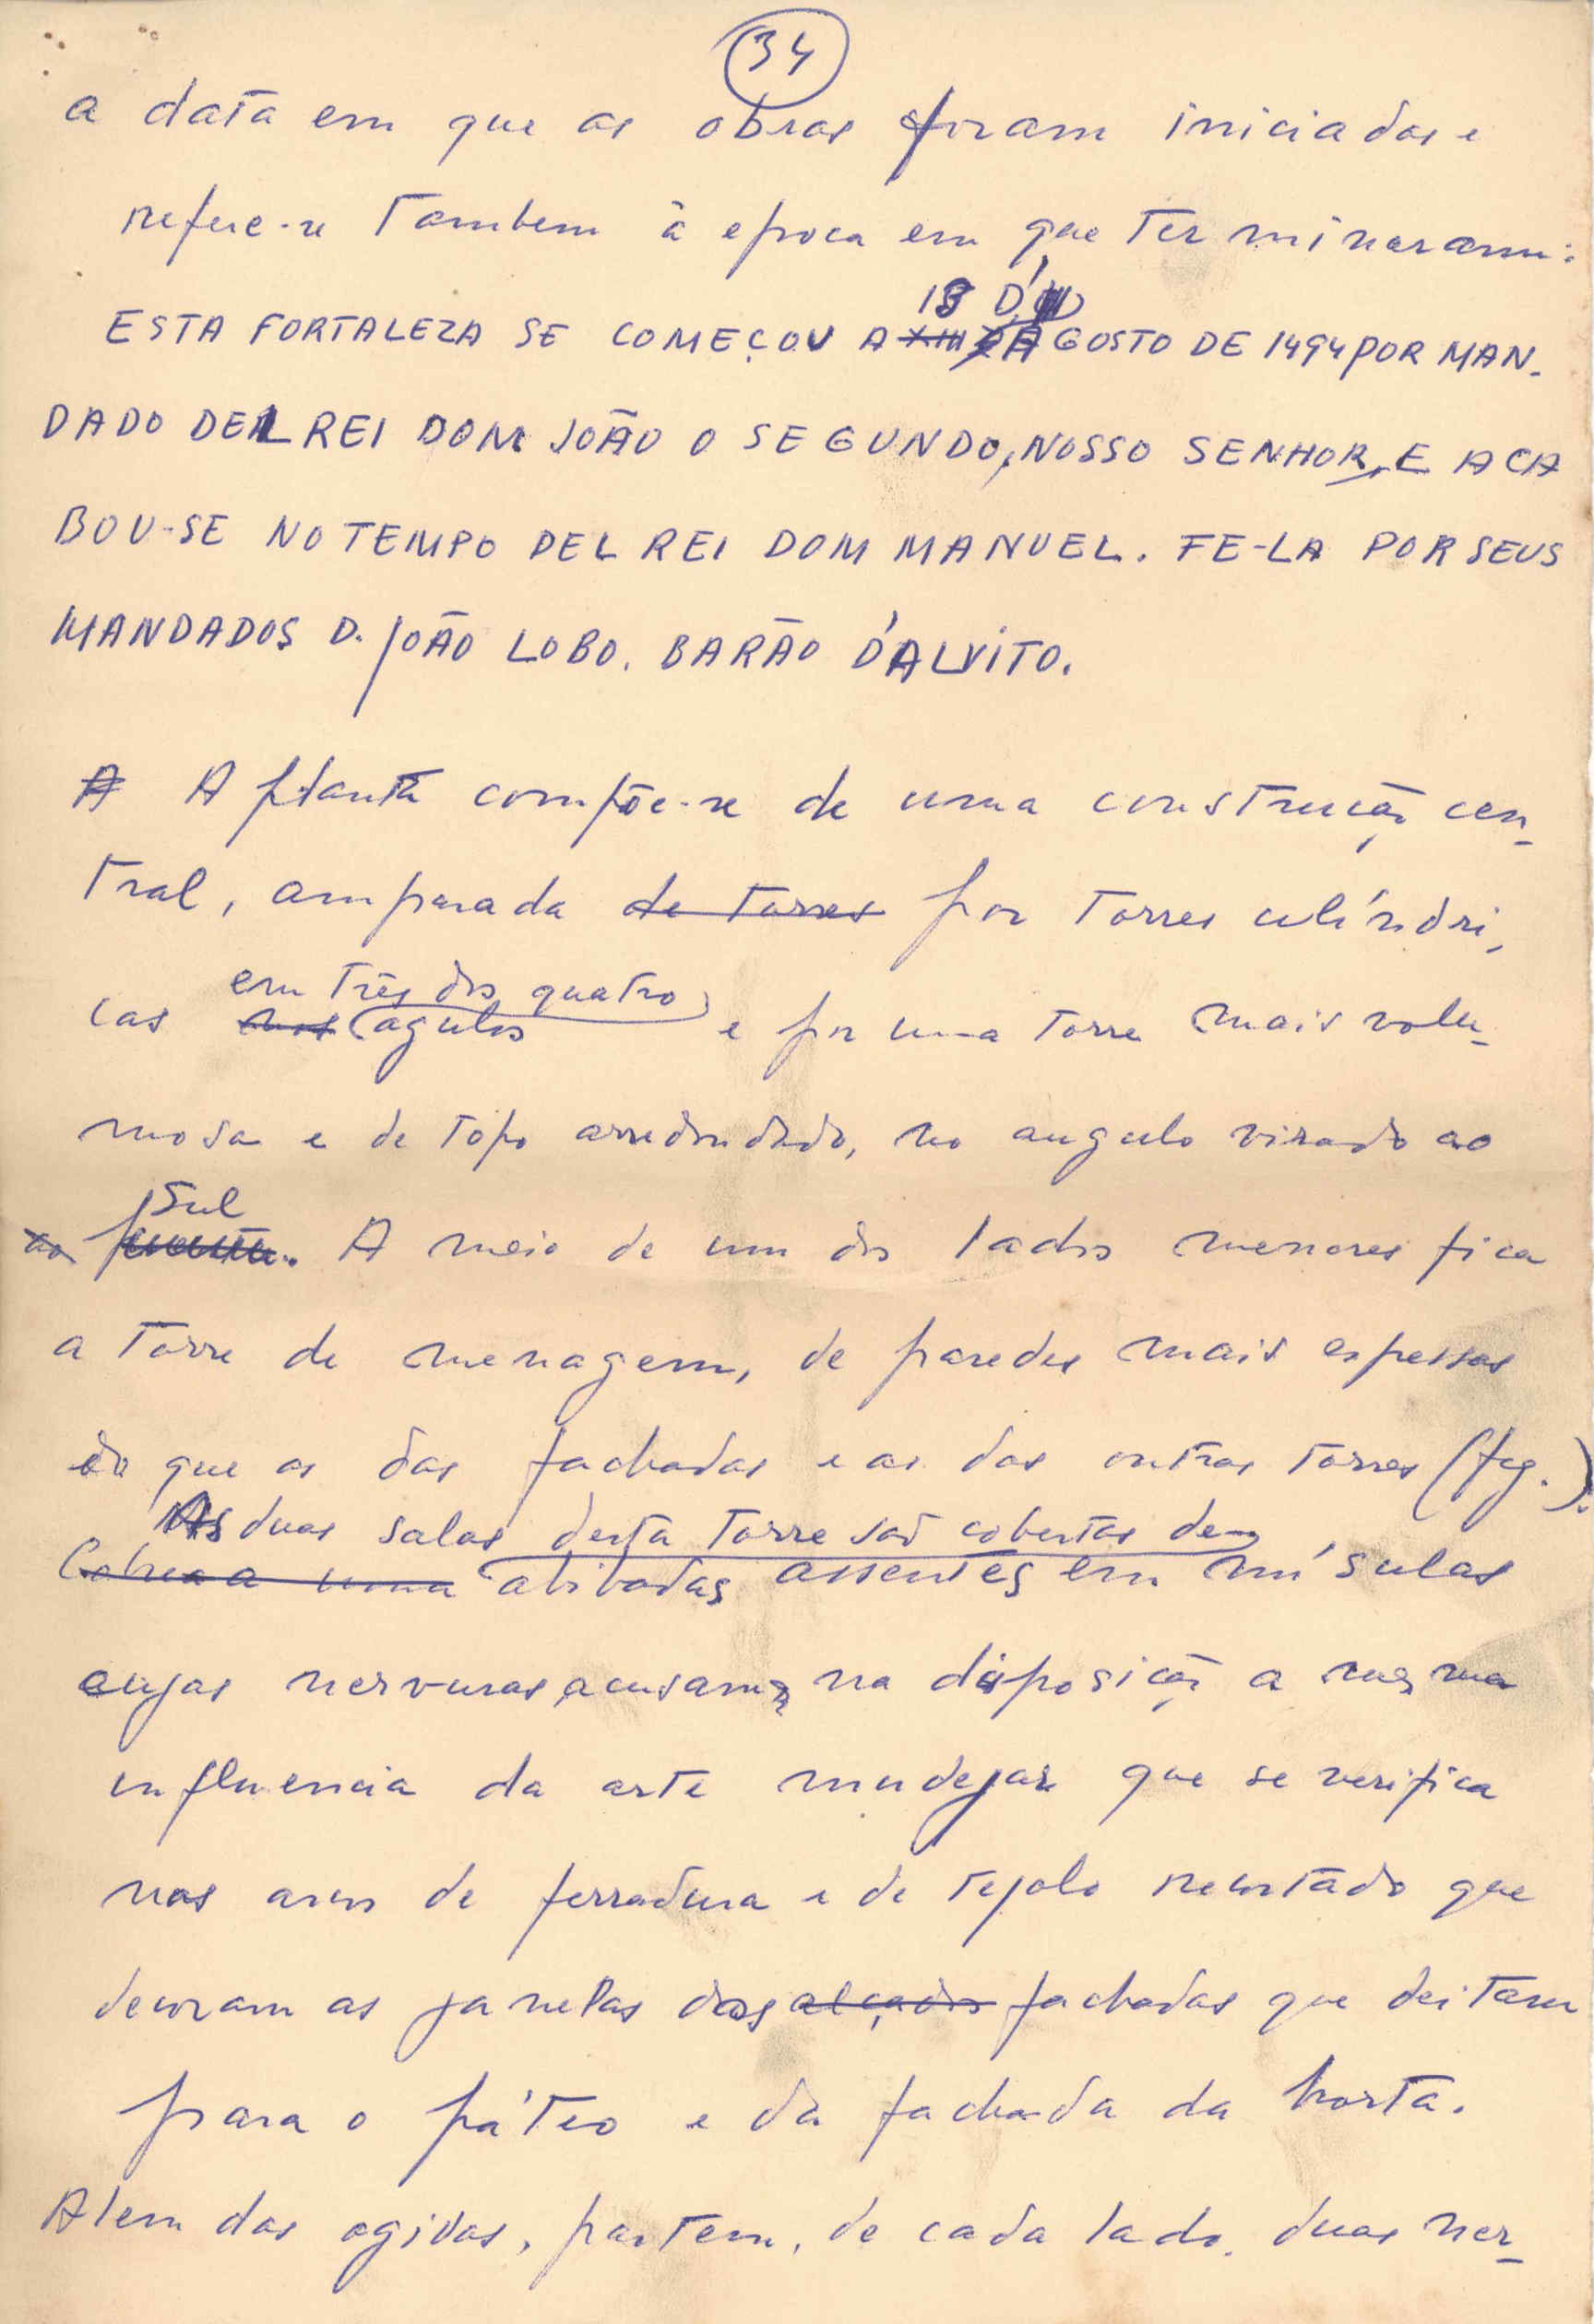 34
a data em que as obras foram iniciadas e
refere-se tambem à epoca em que terminaram:
13 D'
ESTA FORTALEZA SE COMEÇOU A XIII AGOSTO DE 1494 POR MAN-
DADO DEL REI DOM JOÃO O SEGUNDO, NOSSO SENHOR, E ACA
BOU-SE NO TEMPO DEL REI DOM MANUEL. FE-LA POR SEUS
MANDADOS D. JOÃO LOBO, BARÃO D'ALVITO.
A A planta compõe-se de uma construção cen-
tral, amparada de torres por torres cilíndri-
em três dos quatro
cas nos agulos e por uma torre mais volu-
mosa e de topo arredondado, no angulo virado ao
Sul
ao A meio de um dos lados menores fica
a torre de menagem, de paredes mais espessas
do que as das fachadas e as das outras torres (fig. ).
As duas salas desta torre são cobertas de
Cobre-a uma abibadas assentes em mísulas
cujas nervuras, acusam, na disposição a mesma
influencia da arte mudejar que se verifica
nos arcos de ferradura e de tejolo recortado que
decoram as janelas das alçados fachadas que deitam
para o páteo e da fachada da horta.
Alem das ogivas, partem, de cada lado, duas ner-